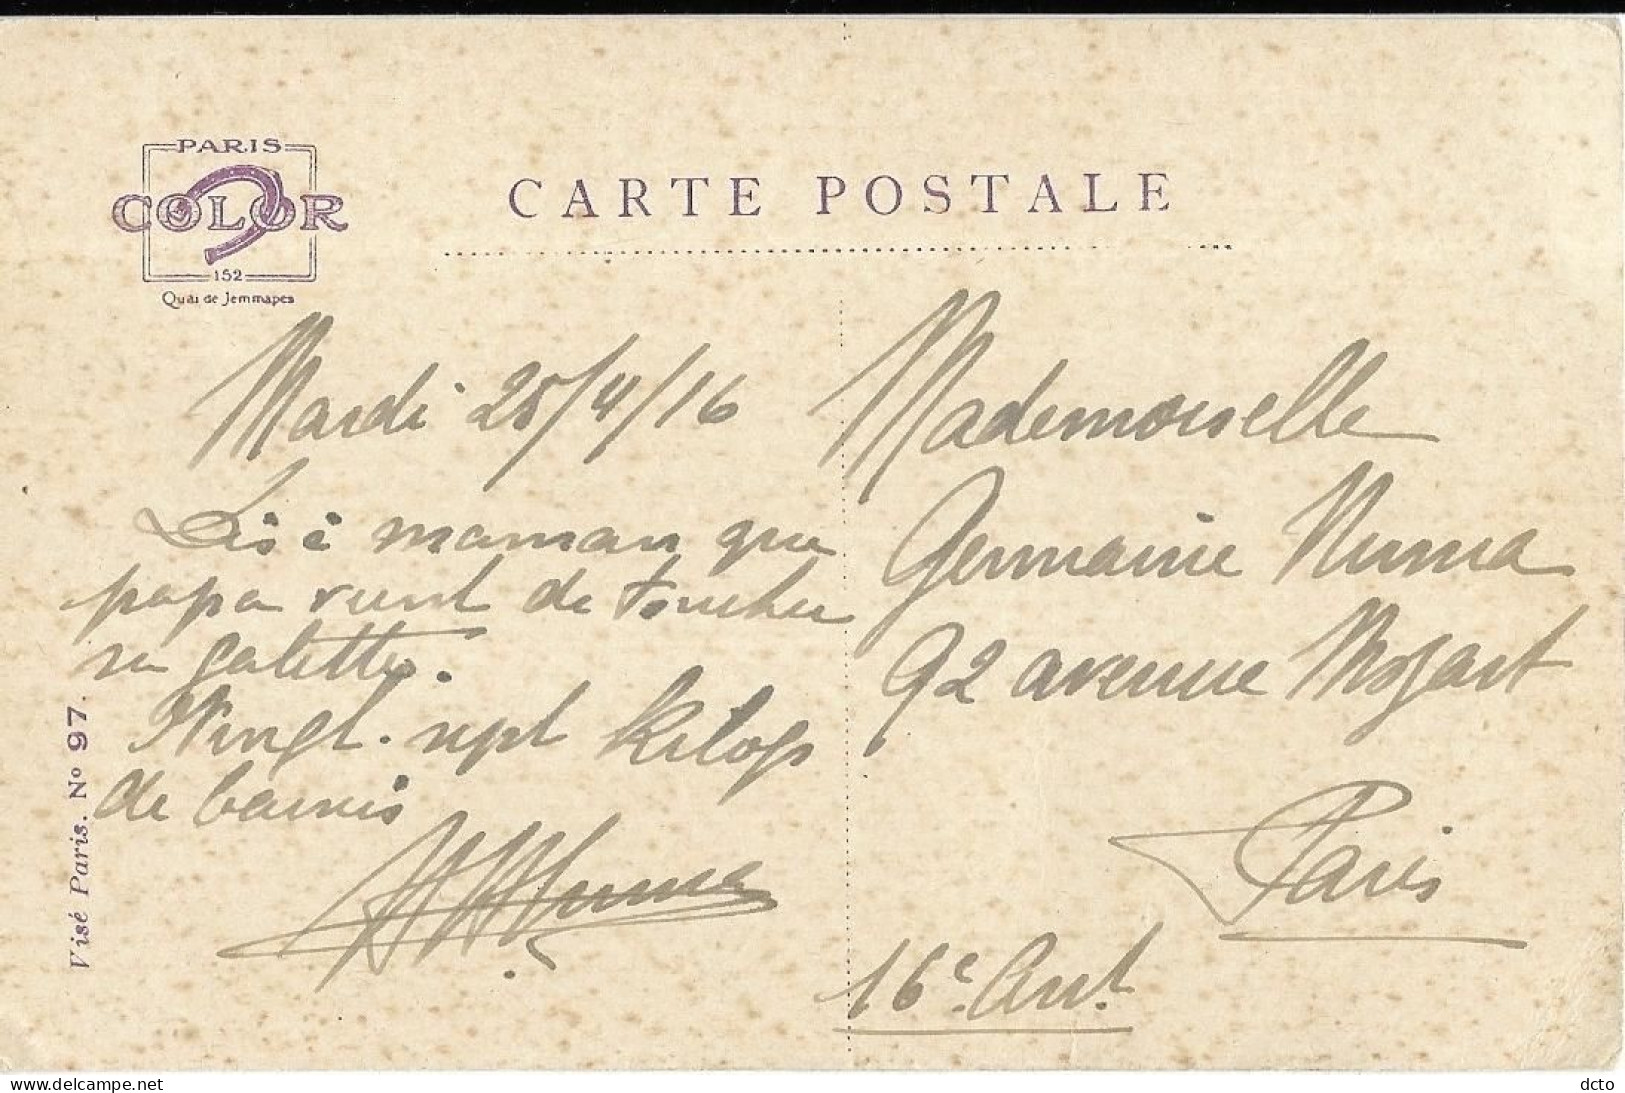 PARIS
COLOR
152
Quai de Jemmapes
CARTE POSTALE
Mardi 25/4/16
Dis à maman que
papa vient de toucher
sa galette.
Vingt-sept kilogs
de
Numa
Visé Paris. Nº 97.
Mademoiselle
Germaine Numa
92 avenue Mozart
Paris
16e Arrt
www.delcampe.net
dcto